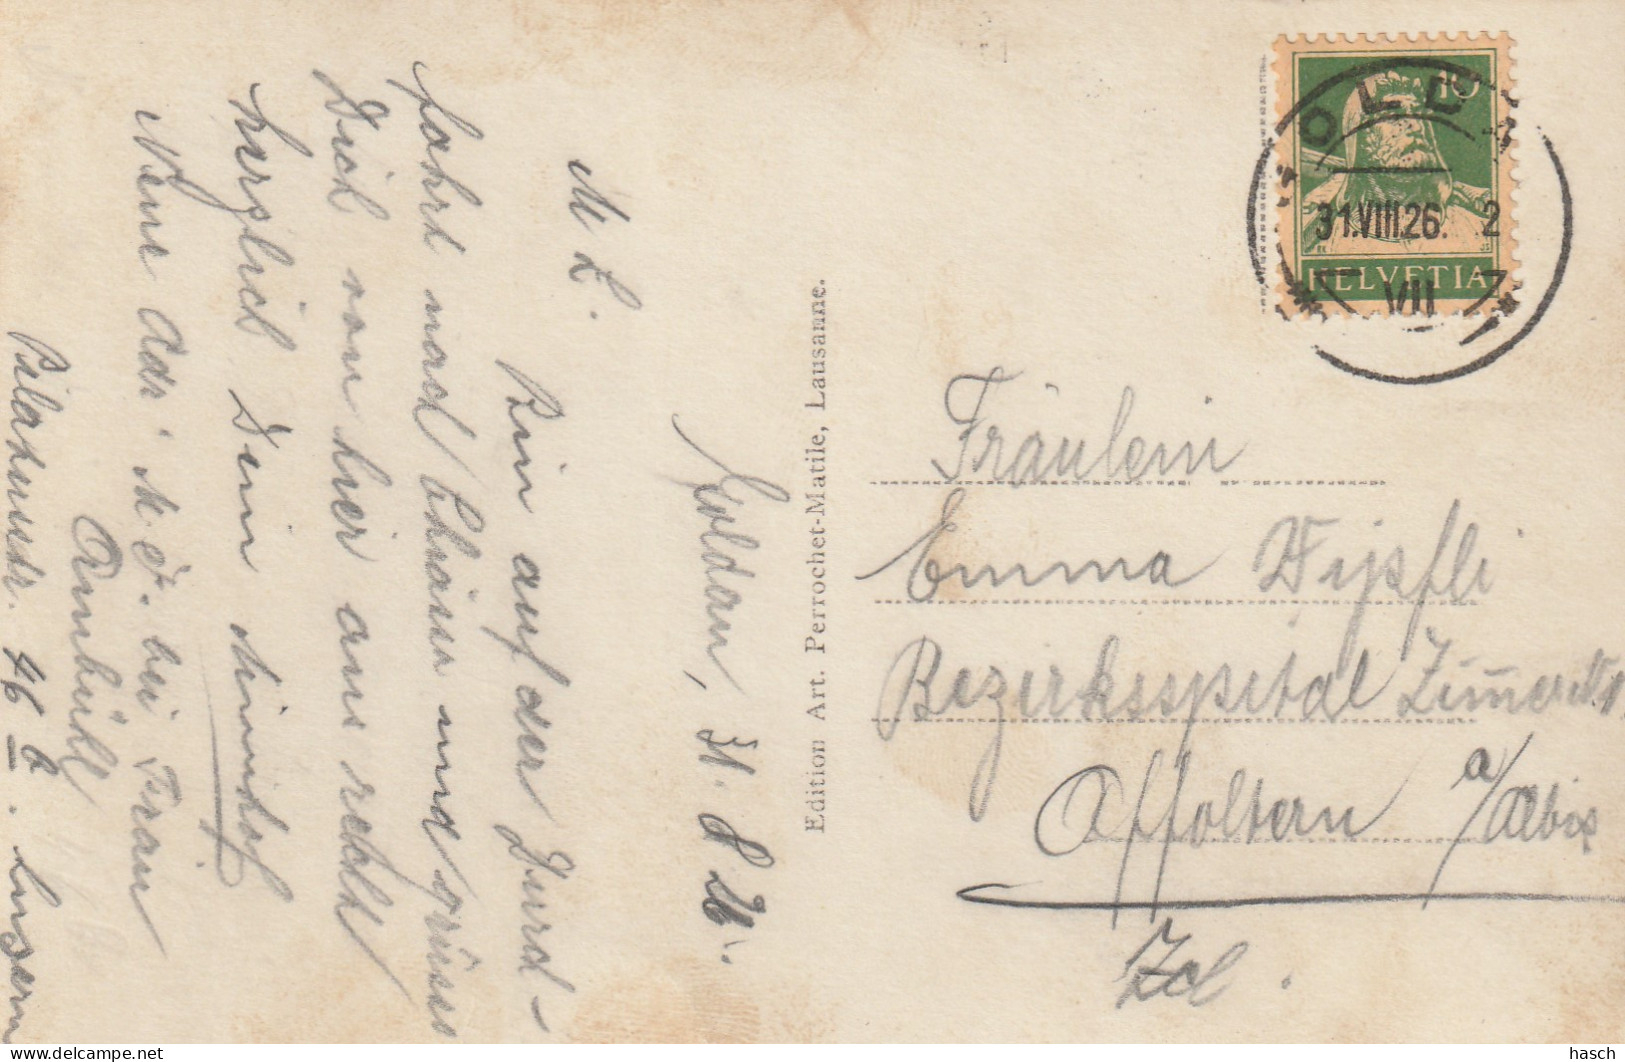 Goldau, 31. 8. 26.
M. L.
Bin auf der Durch-
fahrt nach Chiasso und grüsse
Dich von hier aus recht
herzlich Dein
Neue Adr. M. J. bei Frau
Ambühl
Pilatusstr. 46 b. Luzern
Edition Art. Perrochet-Matile, Lausanne.
10
HELVETIA
GOLDAU
31.VIII.26. 2
VII
Fräulein
Emma Wipfli
Bezirksspital
Affoltern a/Albis
Zch.
hasch